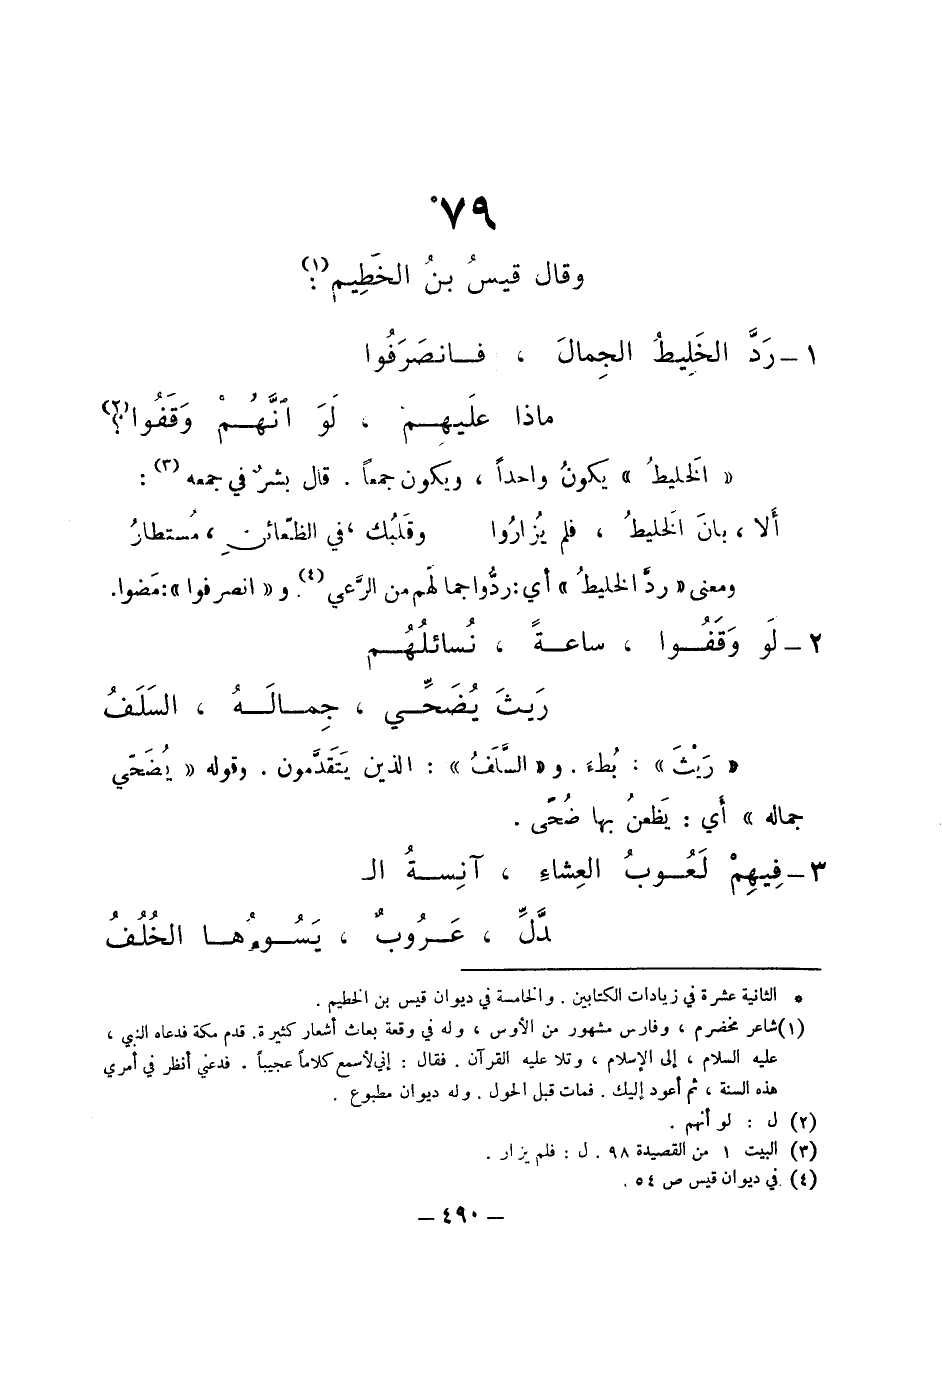 ٧٩*
وقال قيسُ بنُ الخَطِيمِ(١):
١ – رَدَّ الخَلِيطُ الجِمالَ ، فانصَرَفُوا
ماذا علَيهِمْ ، لَوَ ٱنَّهُمْ وَقَفُوا(٢)؟
« الخَليطُ » يكونُ واحداً ، ويكون جمعاً . قال بشرٌ في جمعه (٣) :
أَلا ، بانَ الخليطُ ، فلم يُزارُوا وقَلبُك ، في الظّعائنِ ، مُستطارُ
ومعنى « ردَّ الخليطُ » أي : ردُّوا جمالَهم من الرَّعي(٤). و « انصرفوا » : مَضَوا.
٢ – لَو وَقَفُوا ، ساعةً ، نُسائلُهُم
رَيثَ يُضَحِّي ، جِمالَهُ ، السَلَفُ
« رَيْثَ » : بُطءَ . و « السَّلَفُ » : الذين يَتَقدَّمون . وقوله « يُضَحّي
جماله » أي : يَظعنُ بها ضُحًى .
٣ – فِيهِمْ لَعُوبُ العِشاءِ ، آنِسةُ الـ
ـدَّلِّ ، عَرُوبٌ ، يَسُوءُها الخُلُفُ
* الثانية عشرة في زيادات الكتابين . والخامسة في ديوان قيس بن الخطيم .
(١) شاعر مخضرم ، وفارس مشهور من الأوس ، وله في وقعة بعاث أشعار كثيرة. قدم مكة فدعاه النبي ،
عليه السلام ، إلى الإسلام ، وتلا عليه القرآن . فقال : إني لأسمع كلاماً عجيباً . فدعني أنظر في أمري
هذه السنة ، ثم أعود إليك . فمات قبل الحول . وله ديوان مطبوع .
(٢) ل : لو أنهم .
(٣) البيت ١ من القصيدة ٩٨ . ل : فلم يزار .
(٤) في ديوان قيس ص ٥٤ .
– ٤٩٠ –